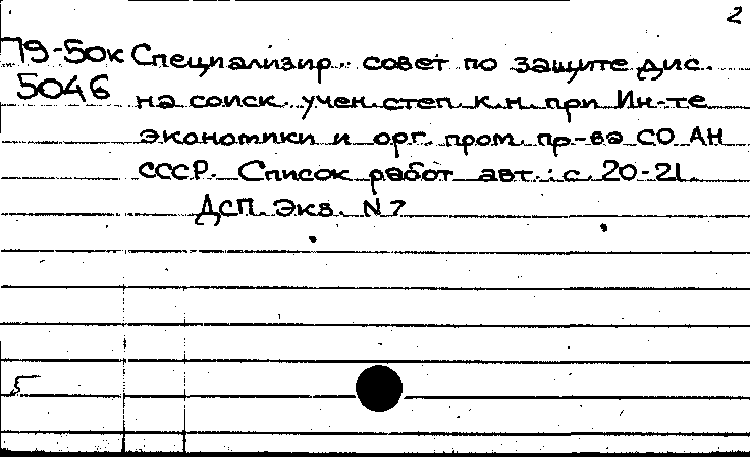 2
79-50к Специализир. совет по защите дис.
5046 на соиск. учен. степ. к.н. при Ин-те
экономики и орг. пром. пр-ва СО АН
СССР. Список работ авт.: с. 20-21.
ДСП. Экз. N 7
5